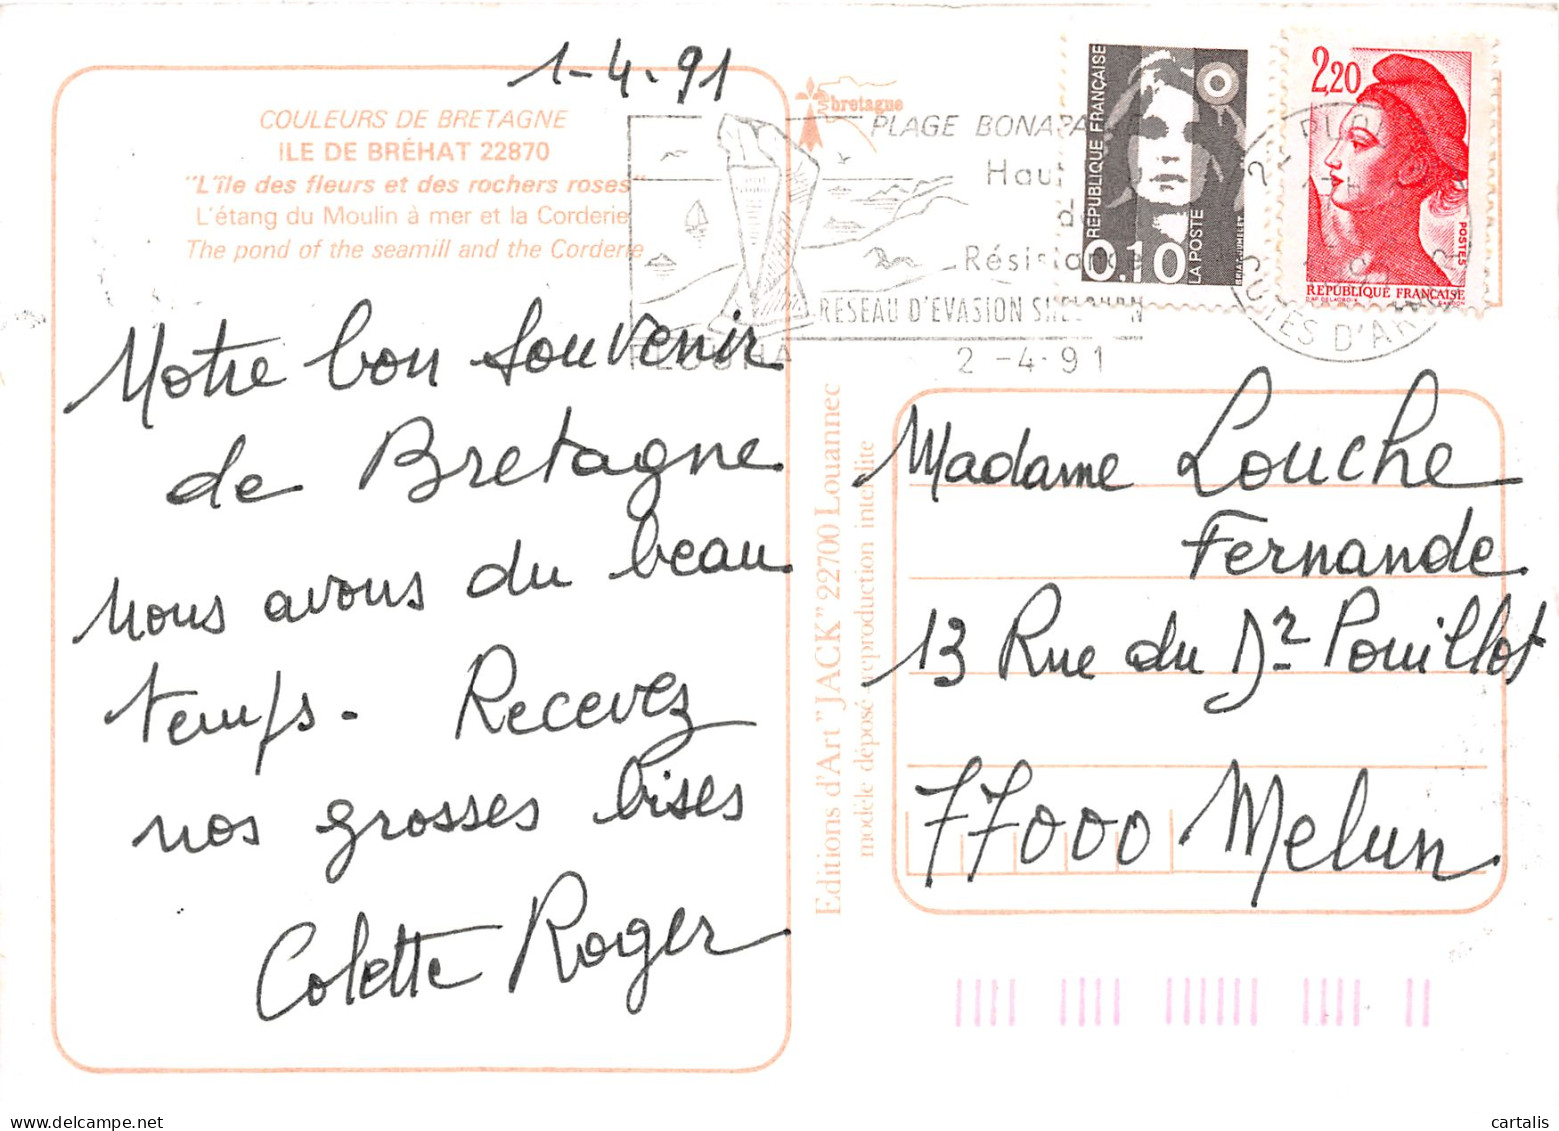 1-4-91
COULEURS DE BRETAGNE
ILE DE BRÉHAT 22870
"L'île des fleurs et des rochers roses"
L'étang du Moulin à mer et la Corderie
The pond of the seamill and the Corderie
Notre bon souvenir
de Bretagne
nous avons du beau
temps. Recevez
nos grosses bises
Colette Roger
bretagne
PLAGE BONAPA
Haut
Résistance
RESEAU D'EVASION SHELBURN
PLOUHA
2 -4-91
RÉPUBLIQUE FRANÇAISE
0,10
LA POSTE
BRIAT-JUMELET
2,20
POSTES
RÉPUBLIQUE FRANÇAISE
CÔTES D'AR
Editions d'Art "JACK" 22700 Louannec
modèle déposé reproduction interdite
Madame Louche
Fernande
13 Rue du Dr Pouillot
77000 Melun
cartalis